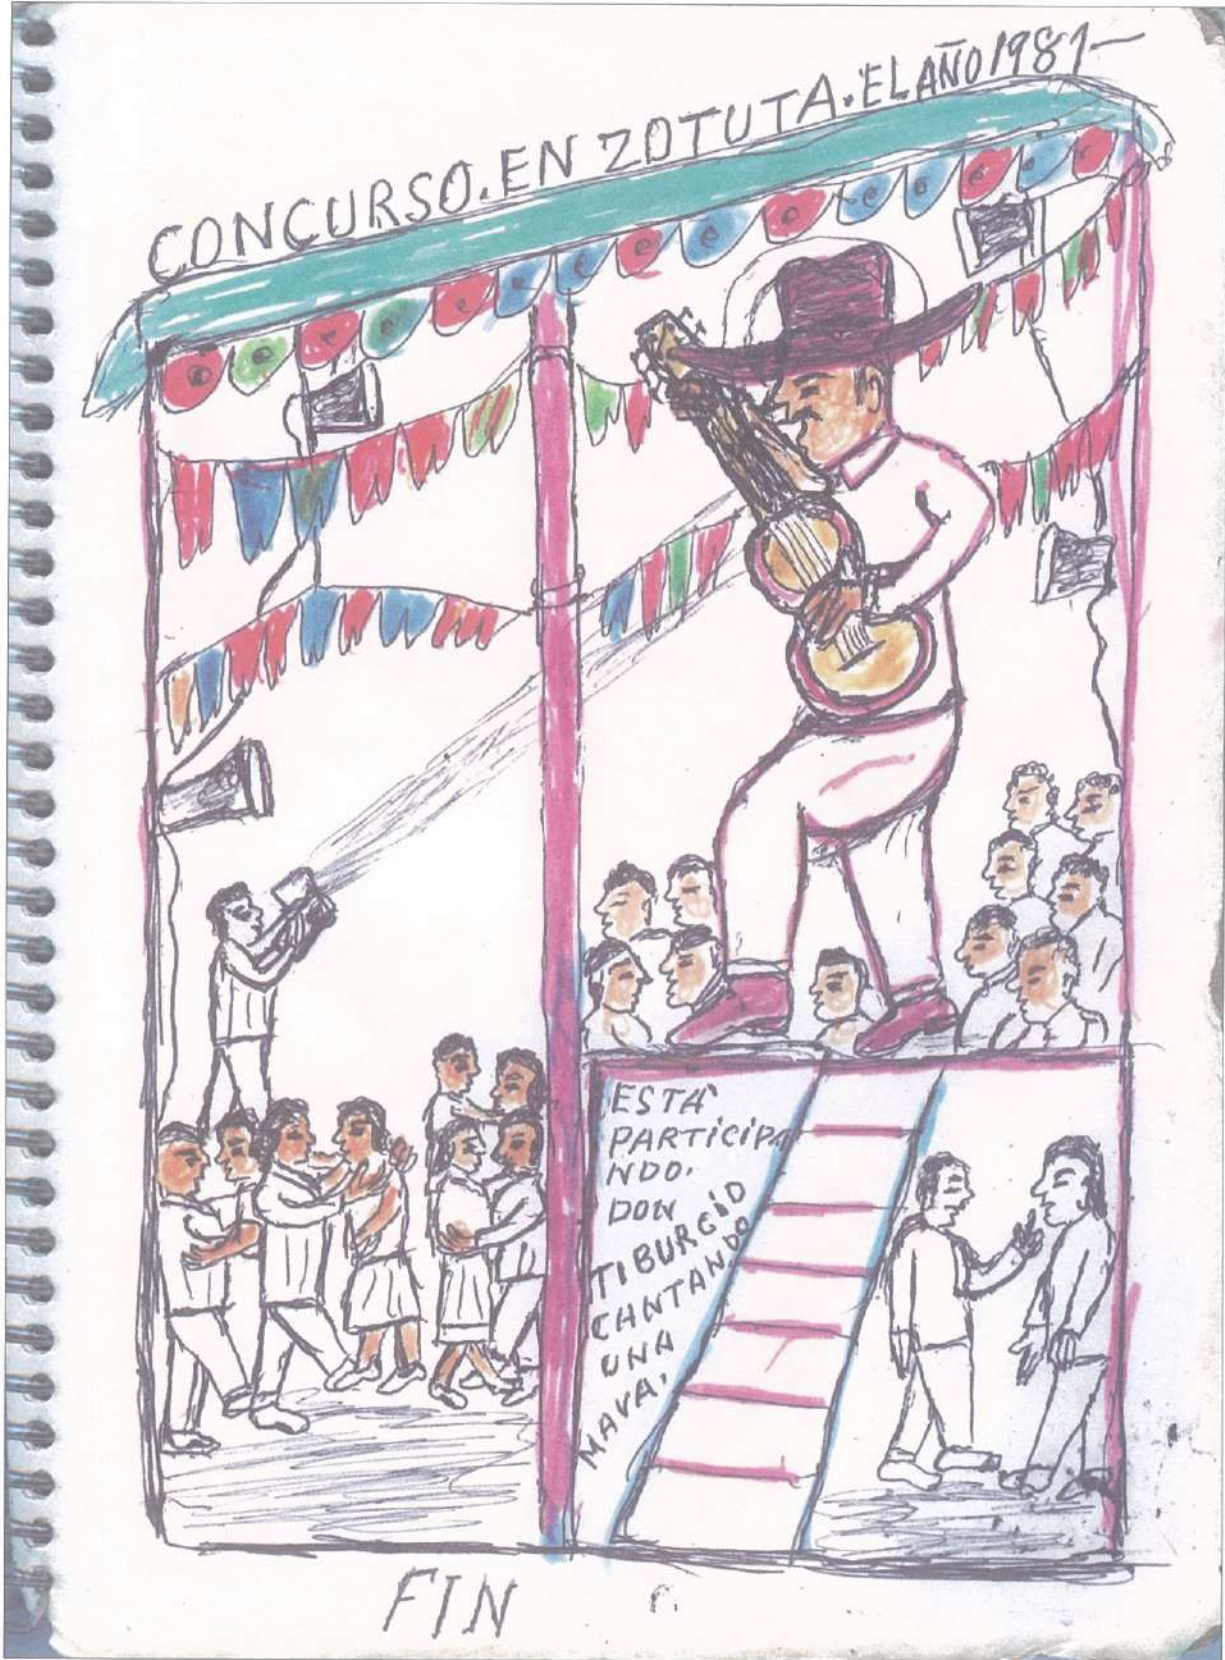 CONCURSO.EN ZOTUTA.EL AÑO 1981-
ESTA
PARTICIPA
NDO.
DON
TIBURCIO
CANTANDO
UNA
MAYA.
FIN